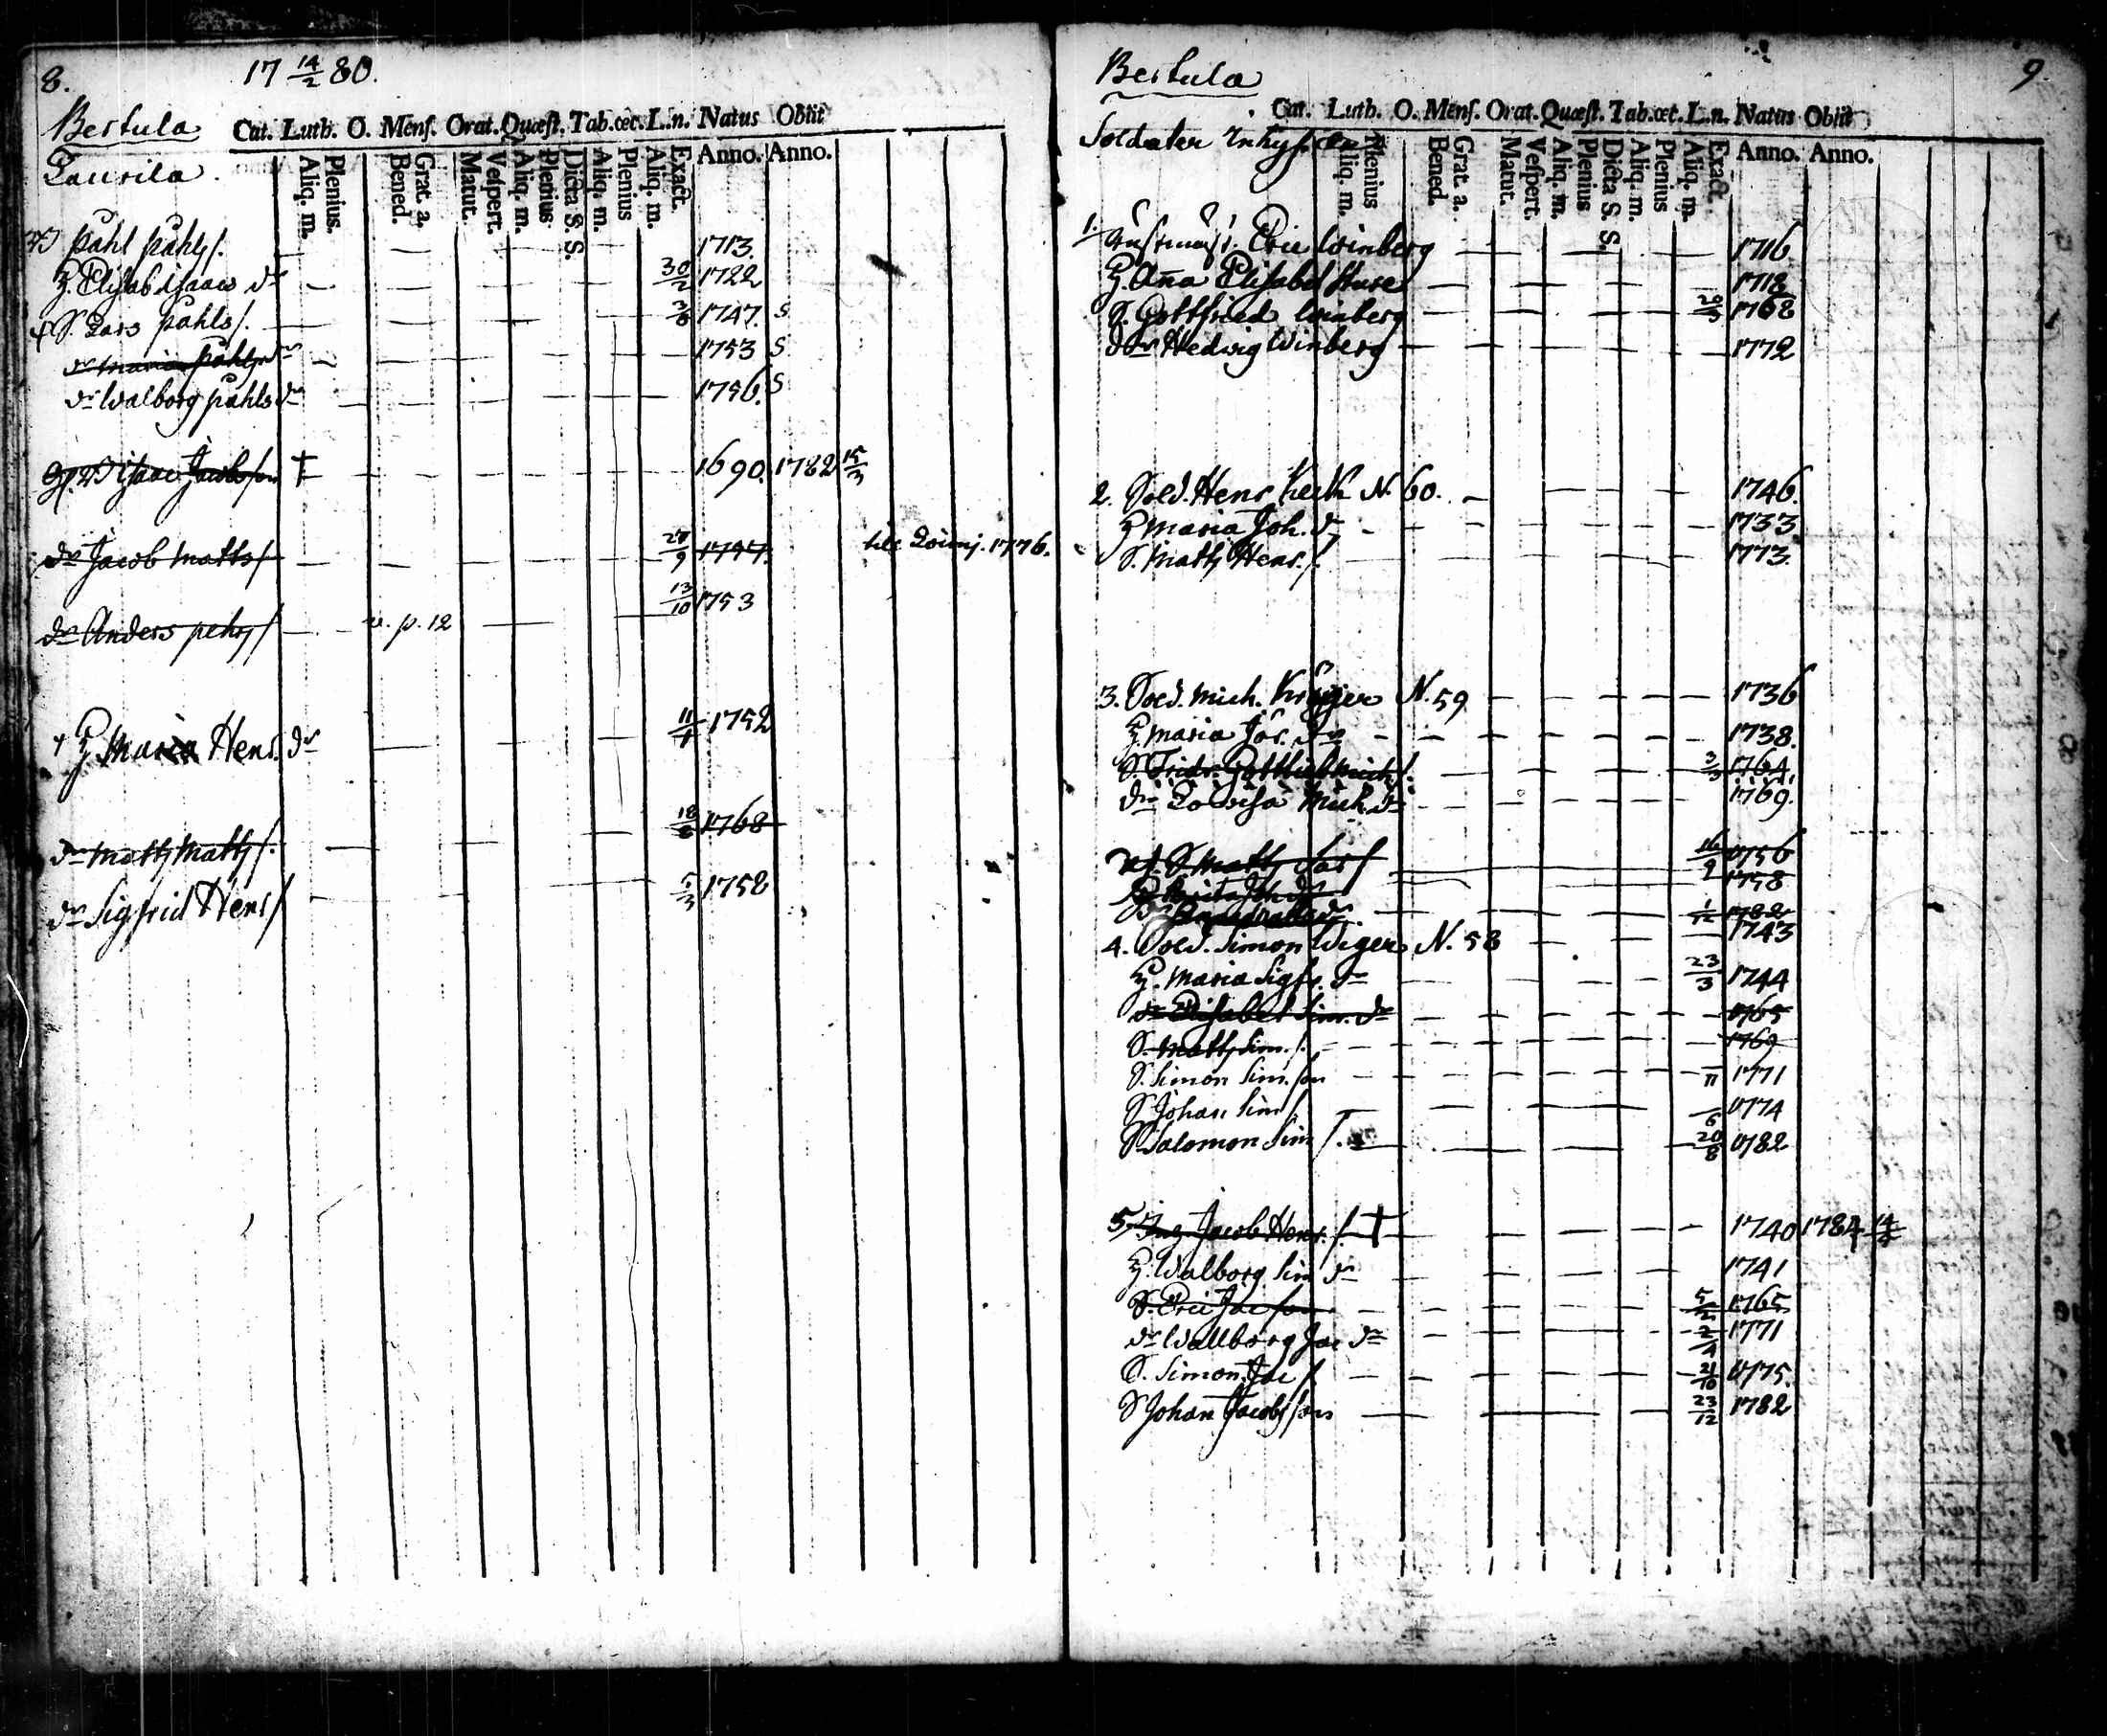 8. 17 14/2 80.
Bertula
Cat. Luth. O. Mens. Orat. Quæst. Tab. œc. L. n. Natus Obiit
Laurila.
Aliq. m. Plenius. Bened. Grat. a. Matut. Vespert. Aliq. m. Plenius Dicta S. S. Aliq. m. Plenius Aliq. m. Exact. Anno. Anno.
Påhl Påhls/. 1713.
H. Elisab Isaacs dr 30/2 1722
S. Lars Påhls/. 3/8 1747. S
dr Maria Påhls dr 1753 S
dr Walborg Påhls dr 1756. S
Isaac Jacobsson † 1690. 1782 15/3
dr Jacob Matts/ 27/9 1747. till 1776.
dr Anders Pehrs/ v. p. 12 13/10 1753
H. Maria Henr. dr 11/1 1752
dr Matts Matts/. 18/8 1768
dr Sigfrid Henr/ 5/3 1752
Bertula 9.
Cat. Luth. O. Mens. Orat. Quæst. Tab. œct. L. n. Natus Obiit
Soldater Inhyses
Aliq. m. Plenius Bened. Grat. a. Matut. Vespert. Aliq. m. Plenius Dicta S. S. Aliq. m. Plenius Aliq. m. Exact. Anno. Anno.
1. Eric Winberg 1716.
H. Aña Elisabet Sture 1718
S. Gottfried Winberg 29/3 1768
dr Hedwig Winberg 1772
2. Sold. Henr. Keck N. 60. 1746.
H Maria Joh. dr 1733.
S. Matts Henr. /. 1773.
3. Sold. Mich. Kröger N. 59 1736
H. Maria dr 1738.
S. Fridr. Gottlieb Mich/. 3/3 1764.
dr Lowisa Mich dr 1769.
S Matts 16/9 1756
H Brita Joh dr 1758
1/12 1782
4. Sold. Simon Weger N. 58 1743
H. Maria Sigfr. dr 23/3 1744
dr Elisabet Sim. dr 1765
S. Matts Sim. /. 1769
S. Simon Sim. son 11 1771
S Johan Sim/. 1774
S Salomon Sim /. 20/8 1782
5. Inh. Jacob Henr. /. † 1740 1784 14/4
H. Walborg Sim dr 1741
S. Eric Jac son 5/2 1765
dr Wallborg Jac dr 2/4 1771
S. Simon Jac / 21/10 1775.
S Johan Jacobsson 23/12 1782